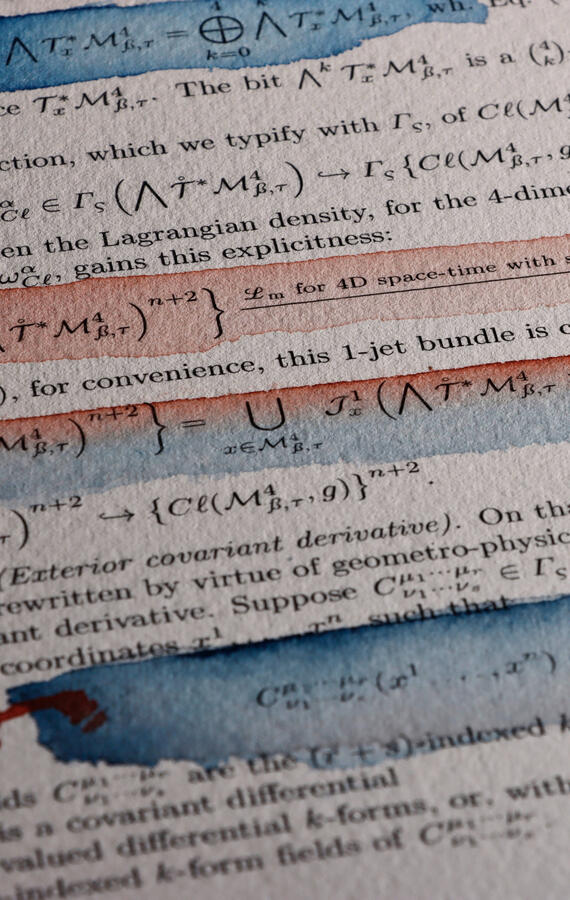 ⋀ T*ₓ M⁴_{ß,τ} = ⊕⁴_{k=0} ⋀ᵏ T*ₓ M⁴_{ß,τ}, wh. Eq. (
ce T*ₓ M⁴_{ß,τ}. The bit ⋀ᵏ T*ₓ M⁴_{ß,τ} is a (⁴ₖ)-
ction, which we typify with Γ_ς, of Cℓ(M⁴
^α_{Cℓ} ∈ Γ_ς(⋀ T̊* M⁴_{ß,τ}) ↪ Γ_ς{Cℓ(M⁴_{ß,τ}, g
en the Lagrangian density, for the 4-dime
ω^α_{Cℓ}, gains this explicitness:
T̊* M⁴_{ß,τ})^{n+2}} ℒ_m for 4D space-time with s
), for convenience, this 1-jet bundle is c
M⁴_{ß,τ})^{n+2}} = ⋃_{x∈M⁴_{ß,τ}} J¹ₓ(⋀ T̊* M⁴_{ß,τ}
τ)^{n+2} ↪ {Cℓ(M⁴_{ß,τ}, g)}^{n+2}.
(Exterior covariant derivative). On tha
rewritten by virtue of geometro-physic
ant derivative. Suppose C^{μ₁···μᵣ}_{ν₁···νₛ} ∈ Γ_ς
coordinates x¹ xⁿ such that
C^{μ₁···μᵣ}_{ν₁···νₛ}(x¹, . . . , xⁿ)
ds C^{μ₁···μᵣ}_{ν₁···νₛ} are the (r + s)-indexed k
is a covariant differential
valued differential k-forms, or, with
-indexed k-form fields of C^{μ₁···μᵣ}_{ν₁···νₛ}